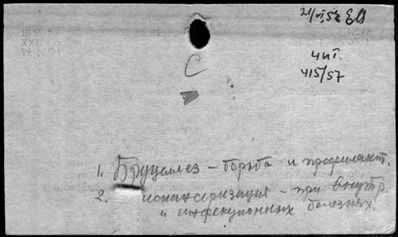 21/VI.57
С
4 иг.
415/57
1. Бруцеллез - борьба и профилакт.
2. Диспансеризация - при внутр.
и инфекционных болезнях.